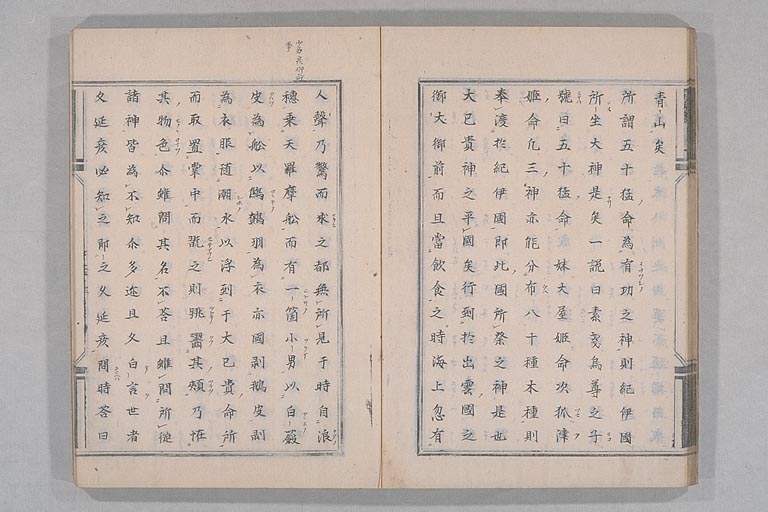 青山矣
所謂五十猛命為有功之神則紀伊國
所坐大神是矣一說曰素戔烏尊之子
號曰五十猛命妹大屋姬命次抓津
姬命凢三神亦能分布八十種木種則
奉渡於紀伊國即此國所祭之神是也
大已貴神之平國矣行到於出雲國之
御大御前而且當飲食之時海上忽有
人聲乃驚而求之都無所見于時自浪
穗乗天羅摩舩而有一箇小男以白蘞
皮為舩以鷦鷯羽為衣亦國剥鵝皮剥
為衣服随潮水以浮到于大已貴命所
而取置掌中而翫之則跳囓其頬乃恠
其物色尒雖問其名不荅且雖問所從
諸神皆為不知尒多迩且久白言世者
久延彦必知之即之久延彦問時荅曰